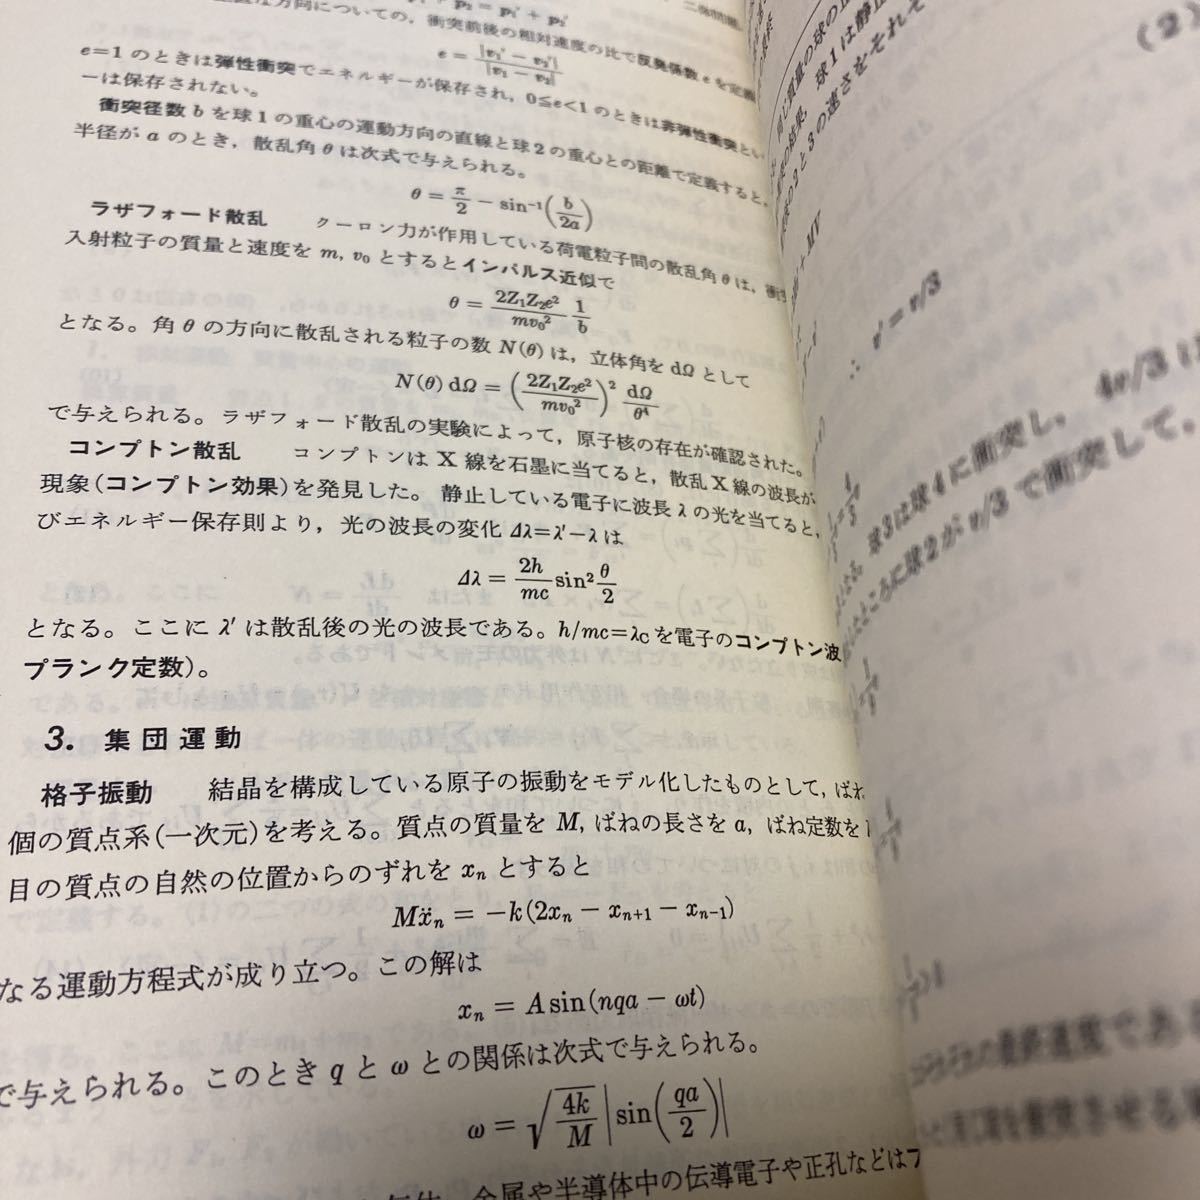 p₂ = p₁′ + p₂′
な方向についての，衝突前後の相対速度の比で反発係数 e を定義
e = |v₁′ − v₂′| / |v₁ − v₂|
e=1 のときは弾性衝突でエネルギーが保存され，0≦e<1 のときは非弾性衝突とい
ーは保存されない。
衝突径数 b を球1の重心の運動方向の直線と球2の重心との距離で定義すると，
半径が a のとき，散乱角 θ は次式で与えられる。
θ = π/2 − sin⁻¹(b/2a)
ラザフォード散乱 クーロン力が作用している荷電粒子間の散乱角 θ は，衝突
入射粒子の質量と速度を m, v₀ とするとインパルス近似で
θ = 2Z₁Z₂e²/mv₀² 1/b
となる。角 θ の方向に散乱される粒子の数 N(θ) は，立体角を dΩ として
N(θ) dΩ = (2Z₁Z₂e²/mv₀²)² dΩ/θ⁴
で与えられる。ラザフォード散乱の実験によって，原子核の存在が確認された。
コンプトン散乱 コンプトンは X 線を石墨に当てると，散乱 X 線の波長が
現象(コンプトン効果)を発見した。静止している電子に波長 λ の光を当てると，
びエネルギー保存則より，光の波長の変化 Δλ=λ′−λ は
Δλ = 2h/mc sin² θ/2
となる。ここに λ′ は散乱後の光の波長である。h/mc=λc を電子のコンプトン波
プランク定数)。
3. 集団運動
格子振動 結晶を構成している原子の振動をモデル化したものとして，ばね
個の質点系(一次元)を考える。質点の質量を M, ばねの長さを a, ばね定数を
目の質点の自然の位置からのずれを xₙ とすると
Mẍₙ = −k(2xₙ − xₙ₊₁ − xₙ₋₁)
なる運動方程式が成り立つ。この解は
xₙ = A sin(nqa − ωt)
で与えられる。このとき q と ω との関係は次式で与えられる。
ω = √(4k/M) |sin(qa/2)|
金属や半導体中の伝導電子や正孔などはフ
(2)
∴ v′ = v/3
球3は球4に衝突し， 4v/3
ところに球2が v/3 で衝突して，
の最終速度であ
を衝突させる